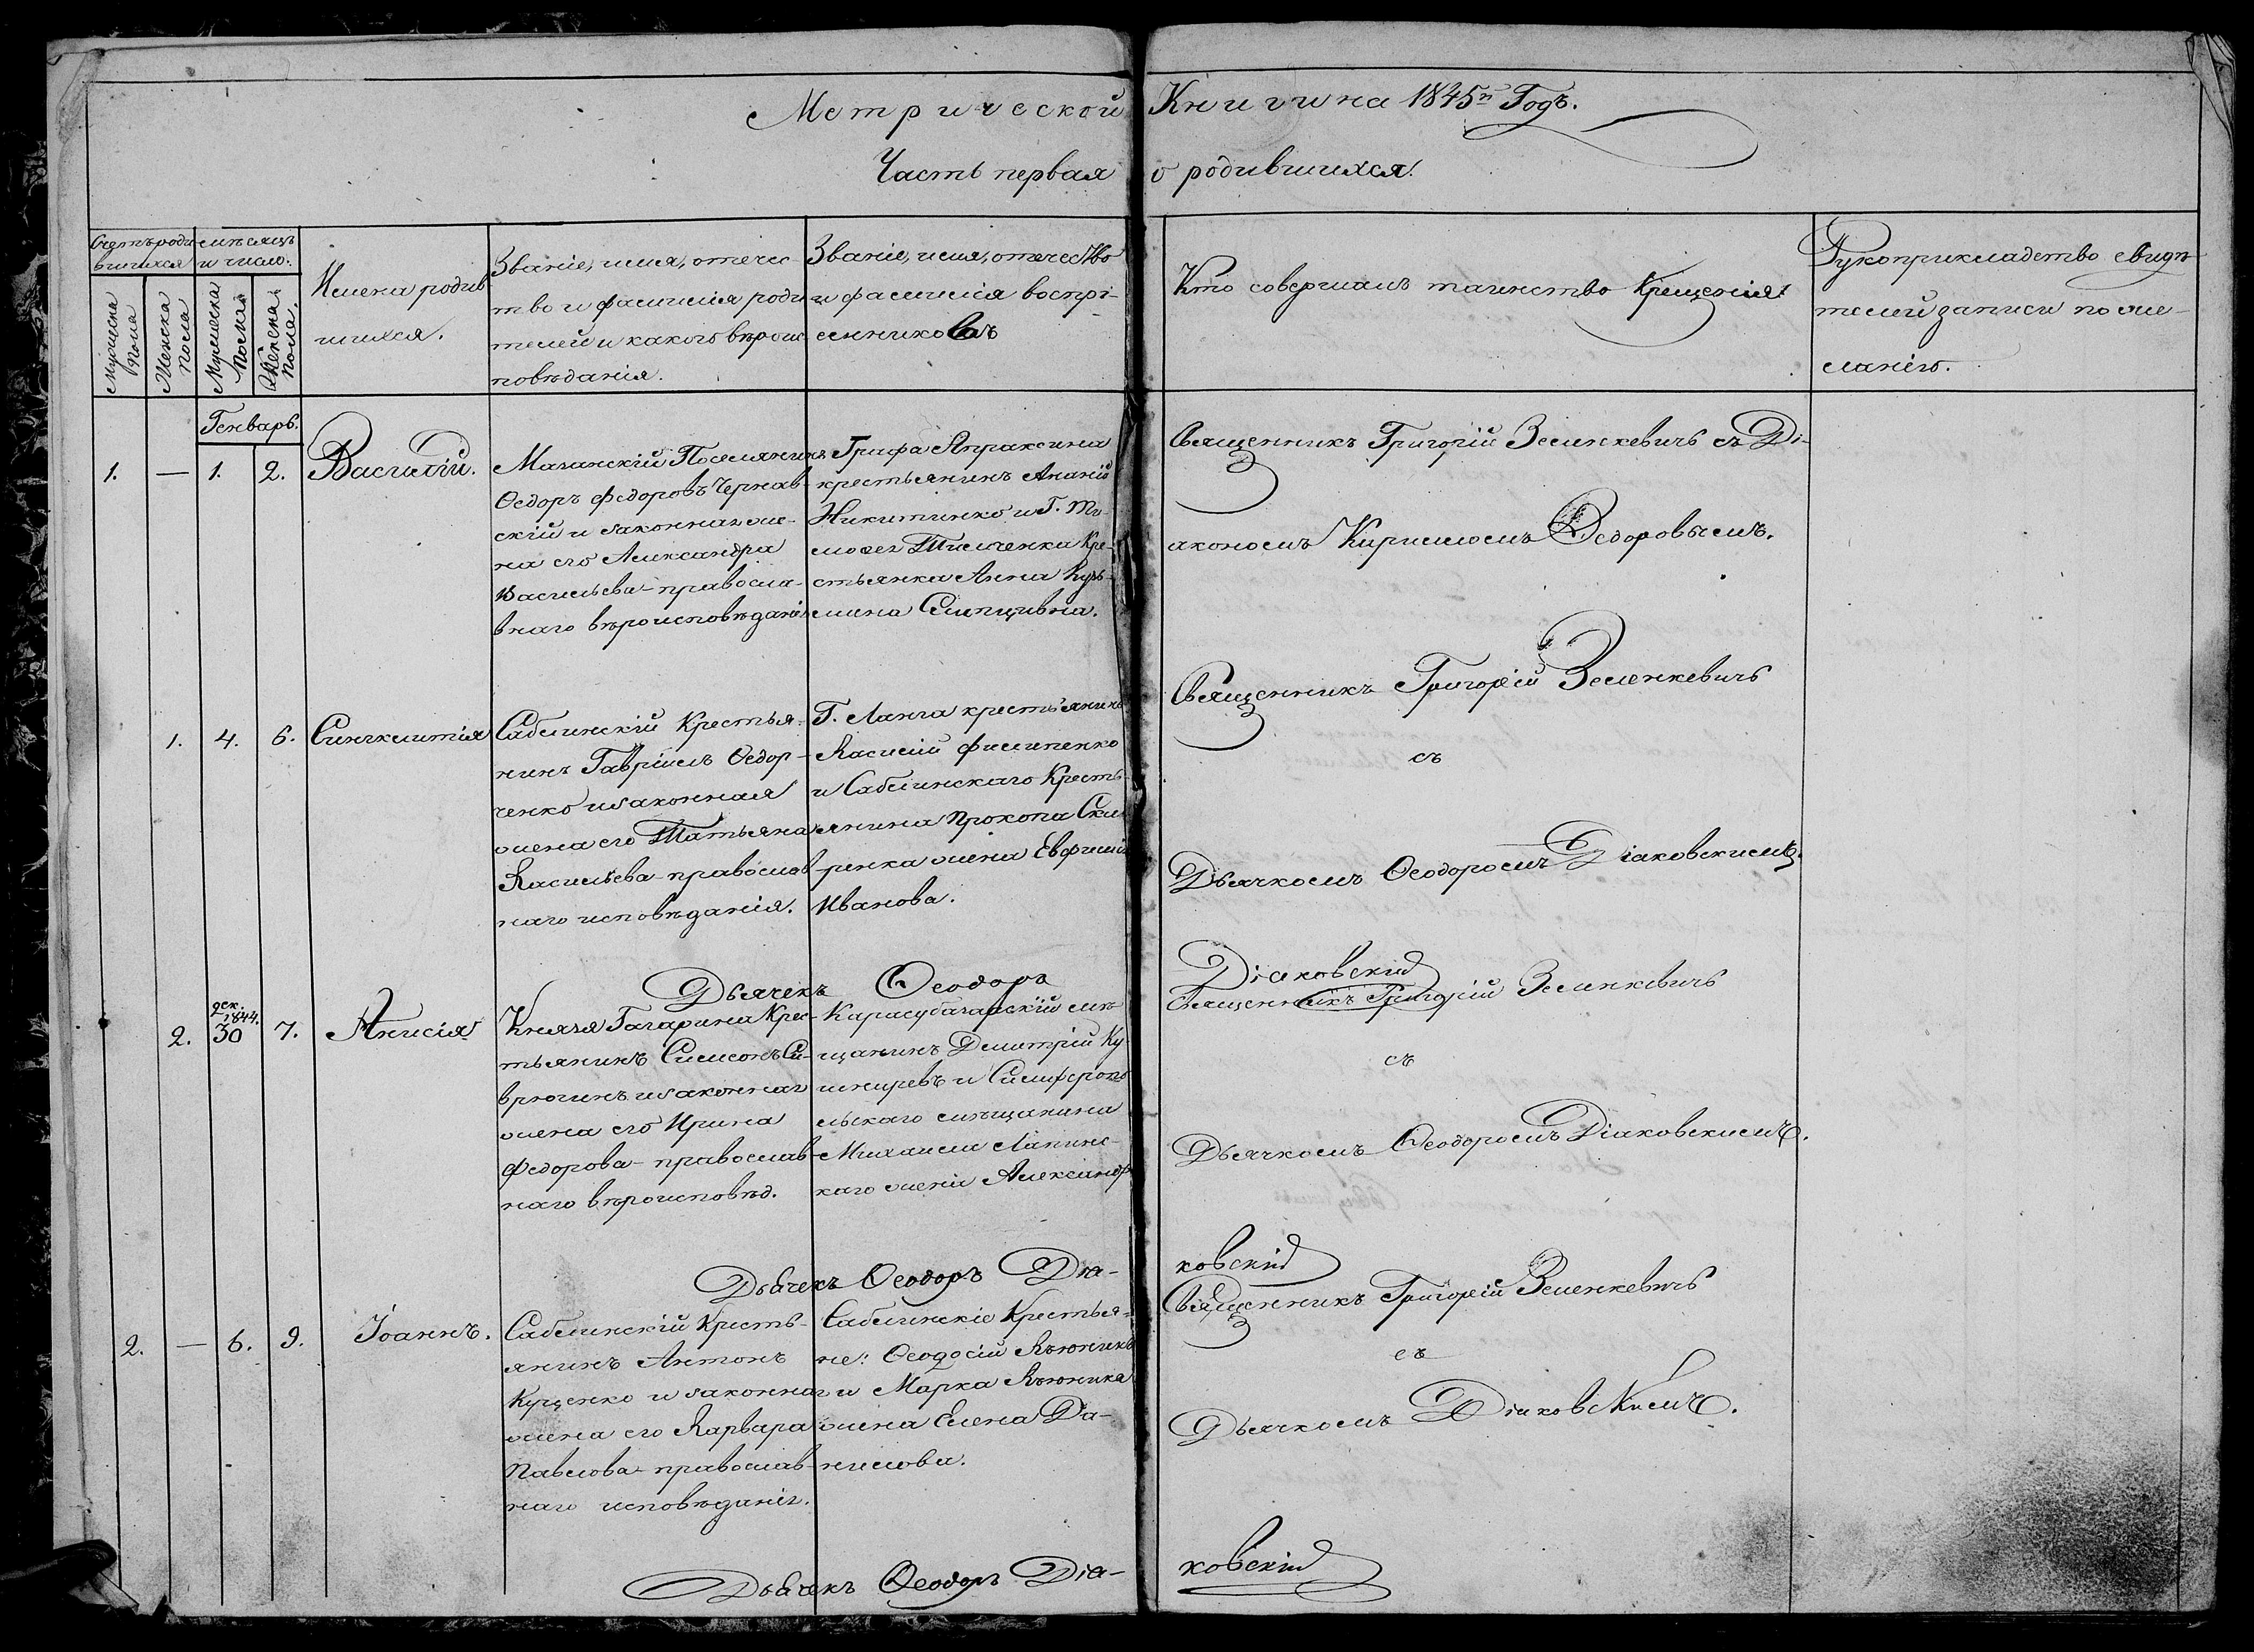 Метрической Книги на 1845й Годъ.
Часть первая о родившихся.
Счетъ роди
вшихся
мѣсяцъ
и число:
Мущиска
пола
Женска
Пола
Мужеска
Пола
Женска
пола.
Имена родив
шихся.
Званіе, имя, отечес
тво и фамилія роди
телей и какого вѣроис
повѣданія.
Званіе, имя, отечество
и фамилія воспрі-
емниковъ
Кто совершалъ таинство Крещенія
Рукоприкладство свидѣ
телей записи по же-
ланію.
Генварь.
1. — 1. 2. Василій.
Мазанскій Поселянинъ
Ѳедоръ Федоровъ Чернав-
скій и законная же-
на его Александра
Васильева - правосла-
внаго вѣроисповѣданія
Графа Апраксина
крестьянинъ Ананій
Никитинко и Г. Ти-
мофея Тимченка Кре-
стьянка Анна Кузь-
мина Слипцивна.
Священникъ Григорій Зелинкевичъ съ Ді-
акономъ Кирилломъ Ѳедоровымъ.
1. 4. 6. Синклитія
Саблинскій Крестья-
нинъ Гавріилъ Ѳедор-
ченко и законная
жена его Татьяна
Васильева - православ
наго исповѣданія.
Г. Ланга крестьянинъ
Василій Филипенко
и Саблинскаго Кресть-
янина Прокопа Скля
ренка жена Евфимія
Иванова.
Священникъ Григорій Зеленкевичъ
съ
Дьячкомъ Ѳеодоромъ Діаковскимъ.
Дьячекъ Ѳеодоръ Діаковскій
2. дек. 1844. 30 7. Анисія
Князя Гагарина Крес-
тьянинъ Симеонъ Си-
врюгинъ и законная
жена его Ирина
Федорова - православ-
наго вѣроисповѣд.
Карасубазарскій мѣ
щанинъ Димитрій Ку
шниревъ и Симферопо
льскаго мѣщанина
Михаила Лапинс-
каго жена Александр
Священникъ Григорій Зеленкевичъ
съ
Дьячкомъ Ѳеодоромъ Діаковскимъ.
Дьячекъ Ѳеодоръ Діа-
ковскій
2. — 6. 9. Іоаннъ.
Саблинскій Кресть-
янинъ Антонъ
Куценко и законная
жена его Варвара
Павлова - православ-
наго исповѣданія.
Саблинскіе Крестья-
не: Ѳеодосій Вьюникъ
и Марка Вьюника
жена Елена Да-
нилова.
Священникъ Григорій Зеленкевичъ
съ
Дьячкомъ Діаковскимъ.
Дьячекъ Ѳеодоръ Діа-
ковскій